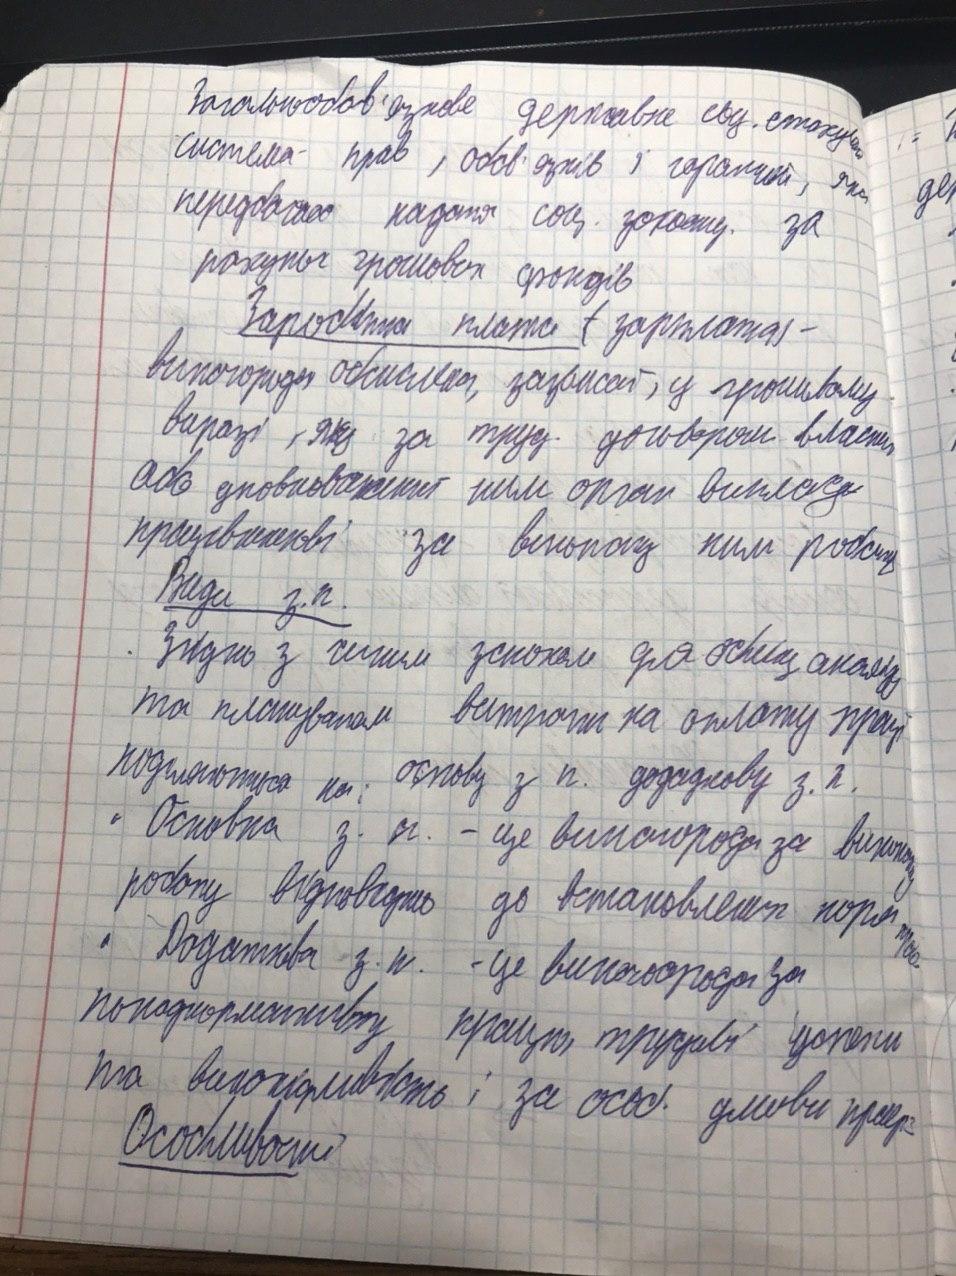 Загальнообов'язкове державне соц. страхування
система прав, обов'язків і гарантій, яка
передбачає надання соц. захисту. за
рахунок грошових фондів
Заробітна плата (зарплата) -
винагорода обчислена, зазвичай, у грошовому
виразі, яку за труд. договором власник
або уповноважений ним орган виплачує
працівникові за виконану ним роботу
Види з.п.
Згідно з чинним законом для обліку, аналізу
та планування витрати на оплату праці
поділяються на: основну з п. додаткову з.п.
• Основна з.п. - це винагорода за виконану
роботу відповідно до встановлених норм праці
• Додаткова з.п. - це винагорода за
понаднормативну працю, трудові успіхи
та винахідливість і за особ. умови праці
Особливості